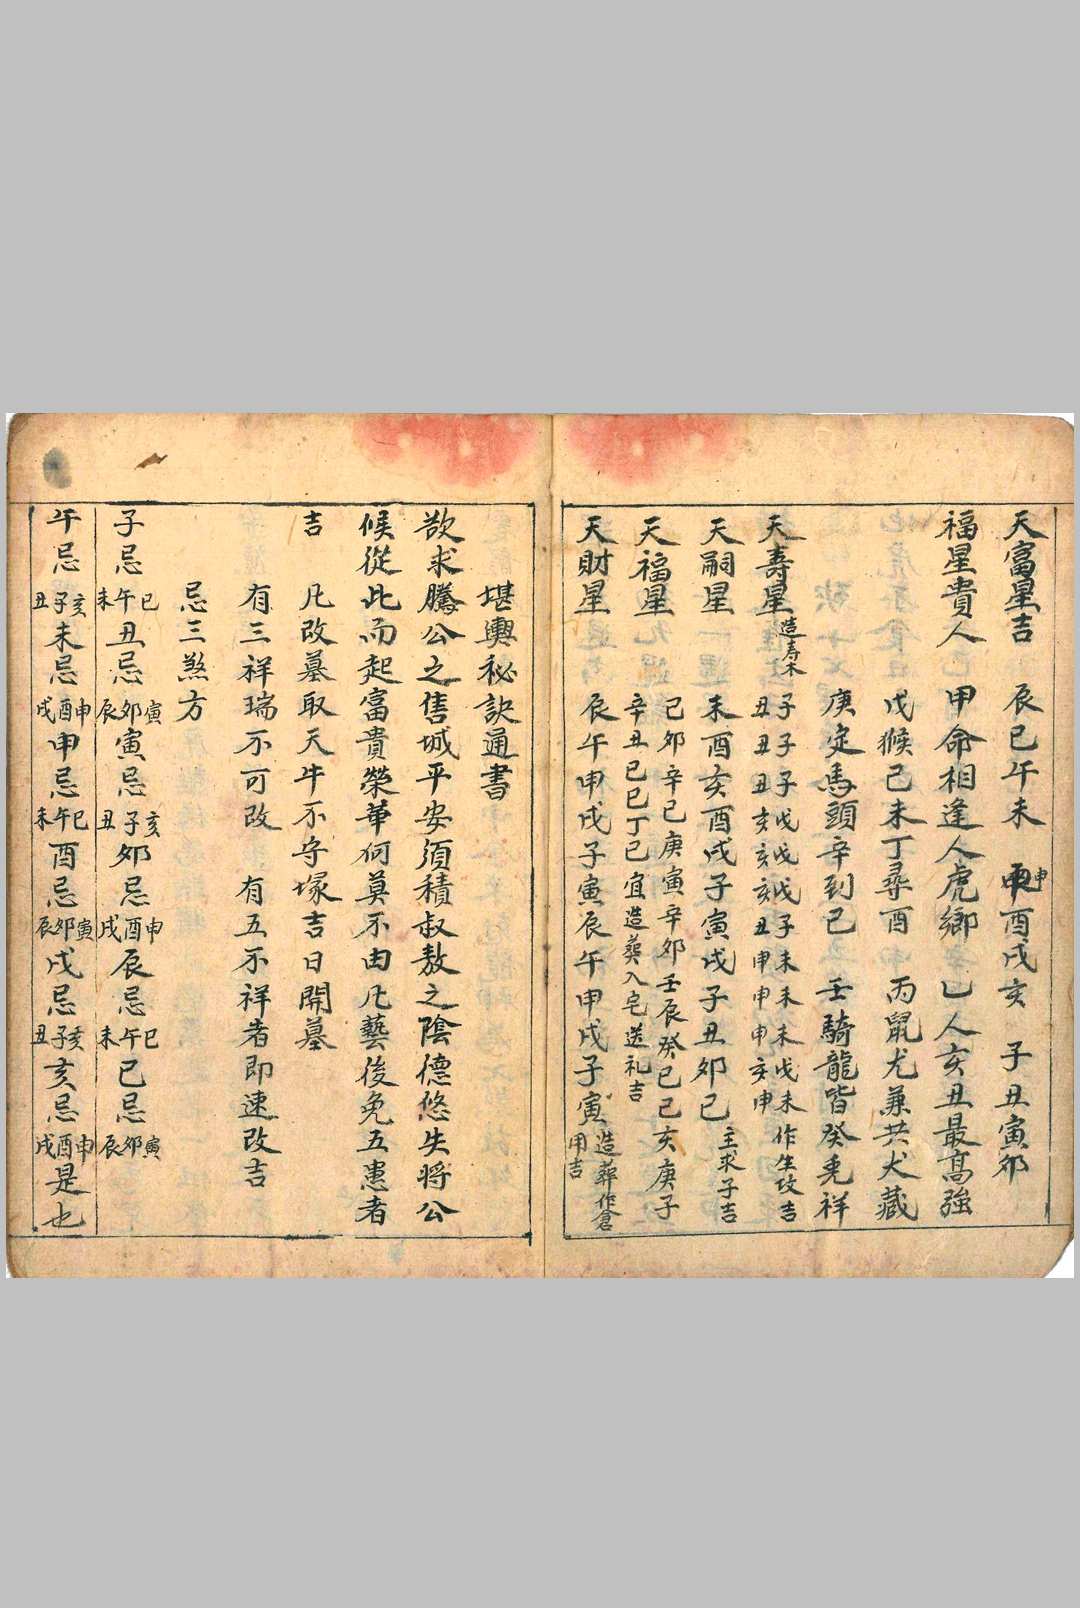 天富星吉 辰巳午未 申酉戌亥 子丑寅卯
福星貴人 甲命相逢人虎鄉 乙人亥丑最高強
戊猴己未丁尋酉 丙鼠尤兼共犬藏
庚定馬頭辛到巳 壬騎龍皆癸兎祥
天壽星 造寿木 子子子戊戊戊子未未未戊未 作生坟吉
丑丑丑亥亥亥丑申申申亥申
天嗣星 未酉亥酉戌子寅戌子丑卯巳 主求子吉
天福星 己卯辛巳庚寅辛卯壬辰癸巳己亥庚子
辛丑乙巳丁巳 宜造葬入宅送礼吉
天財星 辰午申戌子寅辰午申戌子寅 造葬作倉用吉
堪輿秘訣通書
欲求騰公之售城平安須積叔敖之陰德悠失將公
候從此而起富貴榮華何莫不由凡藝後免五患者
吉 凡改墓取天牛不守塚吉日開墓
有三祥瑞不可改 有五不祥者即速改吉
忌三煞方
子忌巳午未丑忌寅卯辰寅忌亥子丑卯忌申酉戌辰忌巳午未巳忌寅卯辰
午忌亥子丑未忌申酉戌申忌巳午未酉忌寅卯辰戌忌亥子丑亥忌申酉戌是也